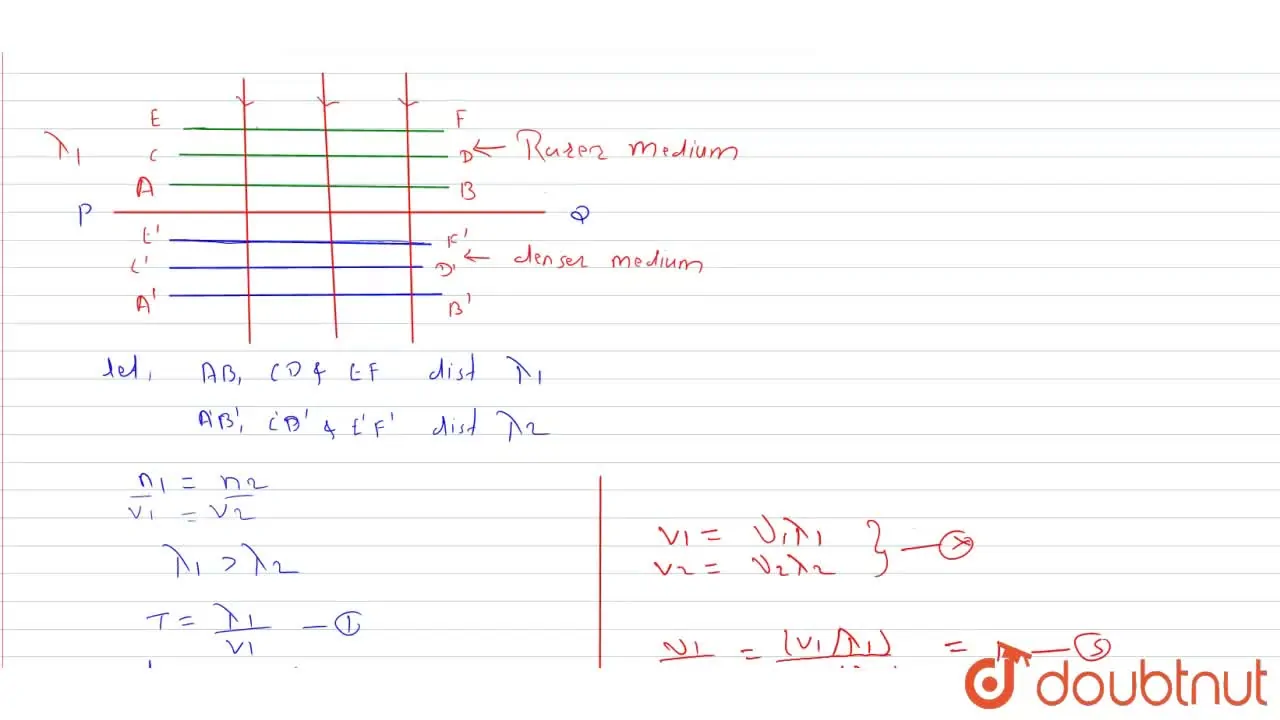 E F
λ1 C D ← Rarer medium
A B
P Q
E' F'
C' D' ← denser medium
A' B'
let, AB, CD & EF dist λ1
A'B', C'D' & E'F' dist λ2
n1 = n2
ν1 = ν2
λ1 > λ2
T = λ1/v1 — ①
v1 = ν1λ1
v2 = ν2λ2
ν1 = (v1/λ1) = 1 — ③
doubtnut